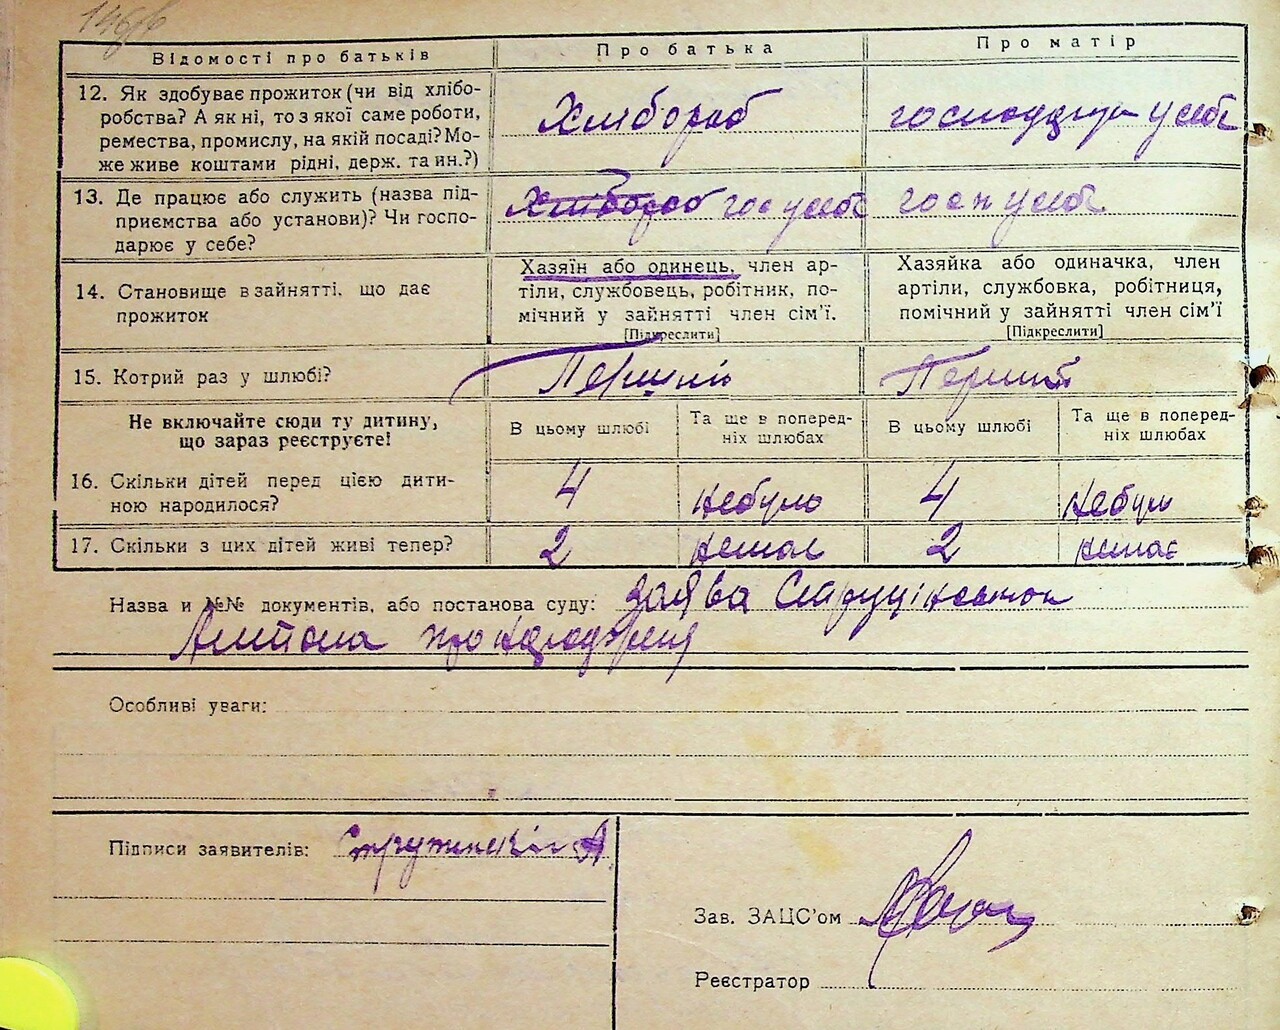 Відомості про батьків Про батька Про матір
12. Як здобуває прожиток (чи від хлібо-
робства? А як ні, то з якої саме роботи,
ремества, промислу, на якій посаді? Мо-
же живе коштами рідні, держ. та ин.?)
Хлібороб
у себе
13. Де працює або служить (назва під-
приємства або установи)? Чи госпо-
дарює у себе?
Хлібороб гос у себе
госп у себе
14. Становище в зайнятті, що дає
прожиток
Хазяїн або одинець, член ар-
тіли, службовець, робітник, по-
мічний у зайнятті член сім'ї.
[Підкреслити]
Хазяйка або одиначка, член
артіли, службовка, робітниця,
помічний у зайнятті член сім'ї
[Підкреслити]
15. Котрий раз у шлюбі?
Перший
Перший
Не включайте сюди ту дитину,
що зараз реєструєте!
В цьому шлюбі
Та ще в поперед-
ніх шлюбах
В цьому шлюбі
Та ще в поперед-
ніх шлюбах
16. Скільки дітей перед цією дити-
ною народилося?
4 небуло 4 небуло
17. Скільки з цих дітей живі тепер?
2 немає 2 немає
Назва и №№ документів, або постанова суду: заява
Антона про
Особливі уваги:
Підписи заявителів:
Зав. ЗАЦС'ом
Реєстратор